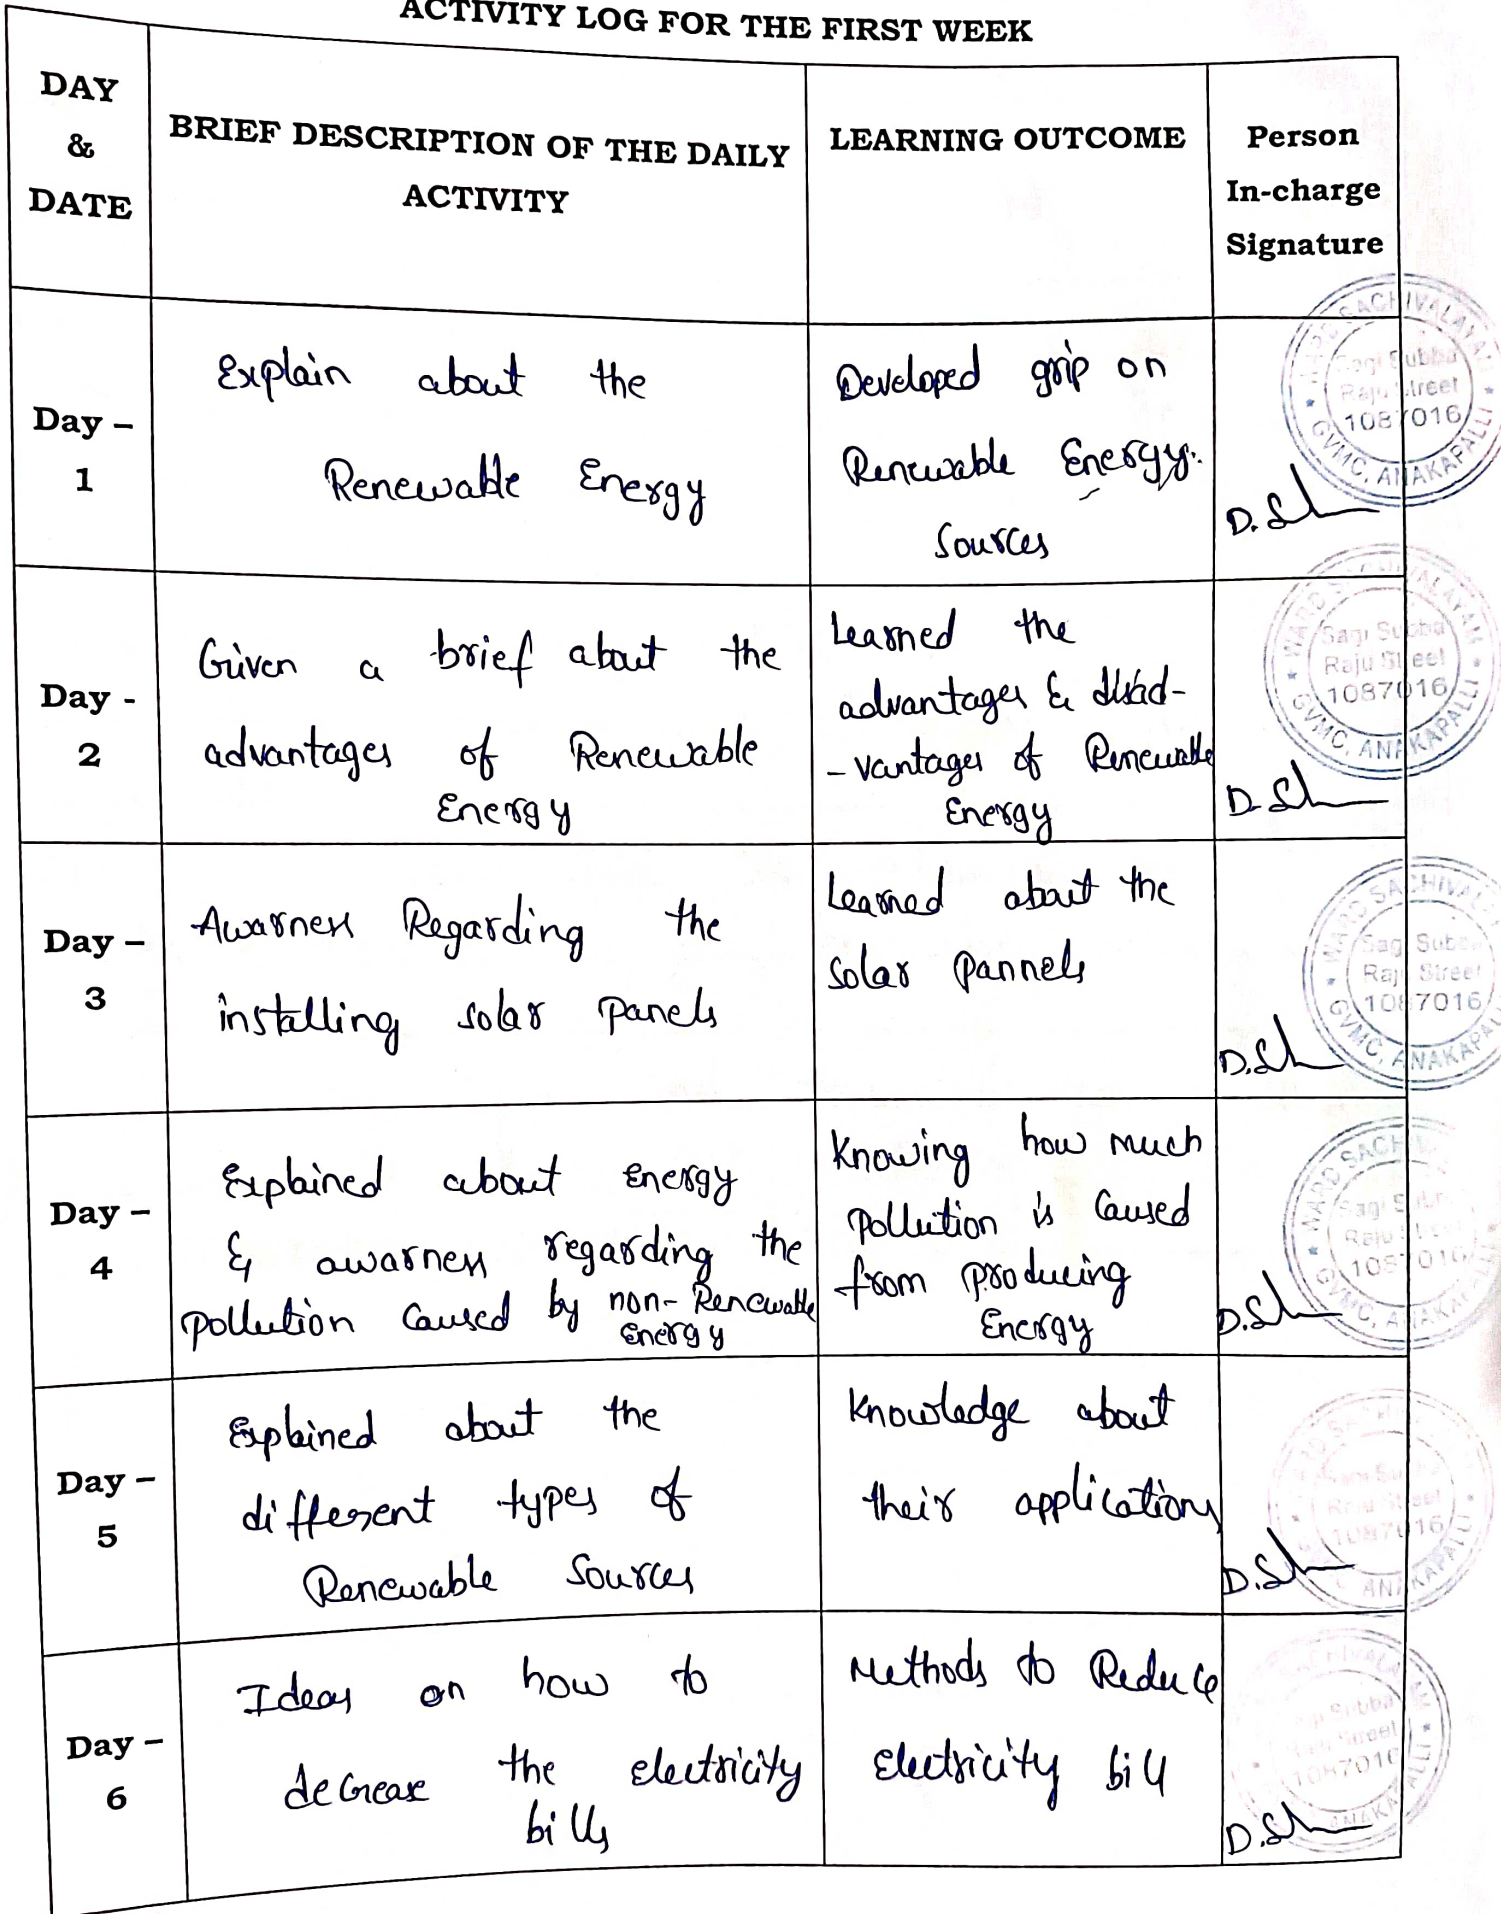 ACTIVITY LOG FOR THE FIRST WEEK
DAY
&
DATE
BRIEF DESCRIPTION OF THE DAILY
ACTIVITY
LEARNING OUTCOME
Person
In-charge
Signature
Day –
1
Explain about the
Renewable Energy
Developed grip on
Renewable Energy
Sources
D. Sh
SACHIVALAYAM
Sagi Subba
Raju Street
1087016
GVMC, ANAKAPALLI
Day -
2
Given a brief about the
advantages of Renewable
Energy
Learned the
advantages & disad-
- vantages of Renewable
Energy
D. Sh
WARD SACHIVALAYAM
Sagi Subba
Raju Street
1087016
GVMC, ANAKAPALLI
Day –
3
Awarness Regarding the
installing solar panels
Learned about the
solar pannels
D. Sh
WARD SACHIVALAY
Sagi Subba
Raju Street
1087016
GVMC, ANAKAPAL
Day –
4
Explained about energy
& awarness regarding the
pollution caused by non-Renewable
energy
Knowing how much
pollution is caused
from producing
Energy
D. Sh
WARD SACHI
Sagi Sub
Raju Street
1087016
GVMC, ANAKA
Day –
5
Explained about the
different types of
Renewable Sources
Knowledge about
their applications
D. Sh
Raju Street
1087016
ANAKAPALLI
Day –
6
Ideas on how to
decrease the electricity
bills
Methods to Reduce
electricity bill
D. Sh
SACHIVALAYAM
Subba
Street
1087016
ANAKAPALLI